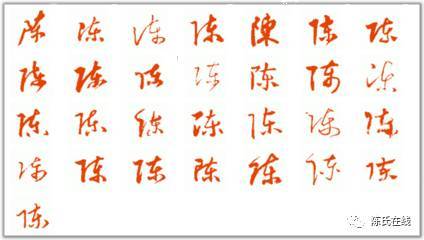 陈 陈 陈 陈 陳 陈 陈
陈 陈 陈 陈 陈 陈 陈
陈 陈 陈 陈 陈 陈 陈
陈 陈 陈 陈 陈 陈 陈
陈
陈氏在线